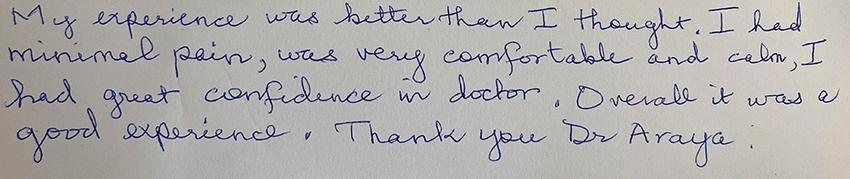 My experience was better than I thought. I had
minimal pain, was very comfortable and calm, I
had great confidence in doctor. Overall it was a
good experience. Thank you Dr Araya.